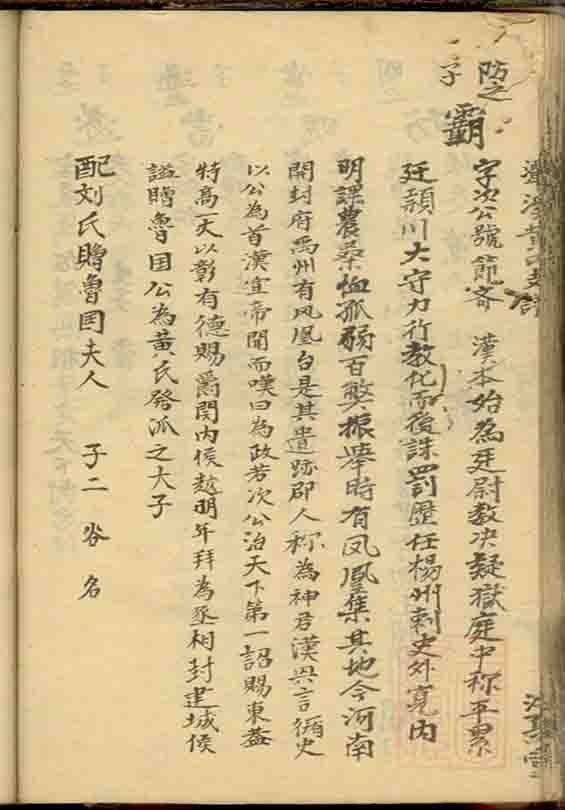 防之子
霸
字次公號節寄 漢本始為廷尉数决疑獄庭中称平累
迁頴川大守力行教化而後誅罰歷任楊州刺史外寬内
明課農桑恤孤弱百獘振舉時有凤凰集其地今河南
開封府禹州有凤凰台是其遺跡郡人称為神君漢興言循史
以公為首漢宣帝聞而嘆曰為政若次公治天下第一詔賜車盖
特高一丈以彰有德賜爵関内侯越明年拜為丞相封建城侯
謚贈魯国公為黄氏啓派之大子
配刘氏贈魯国夫人 子二 名